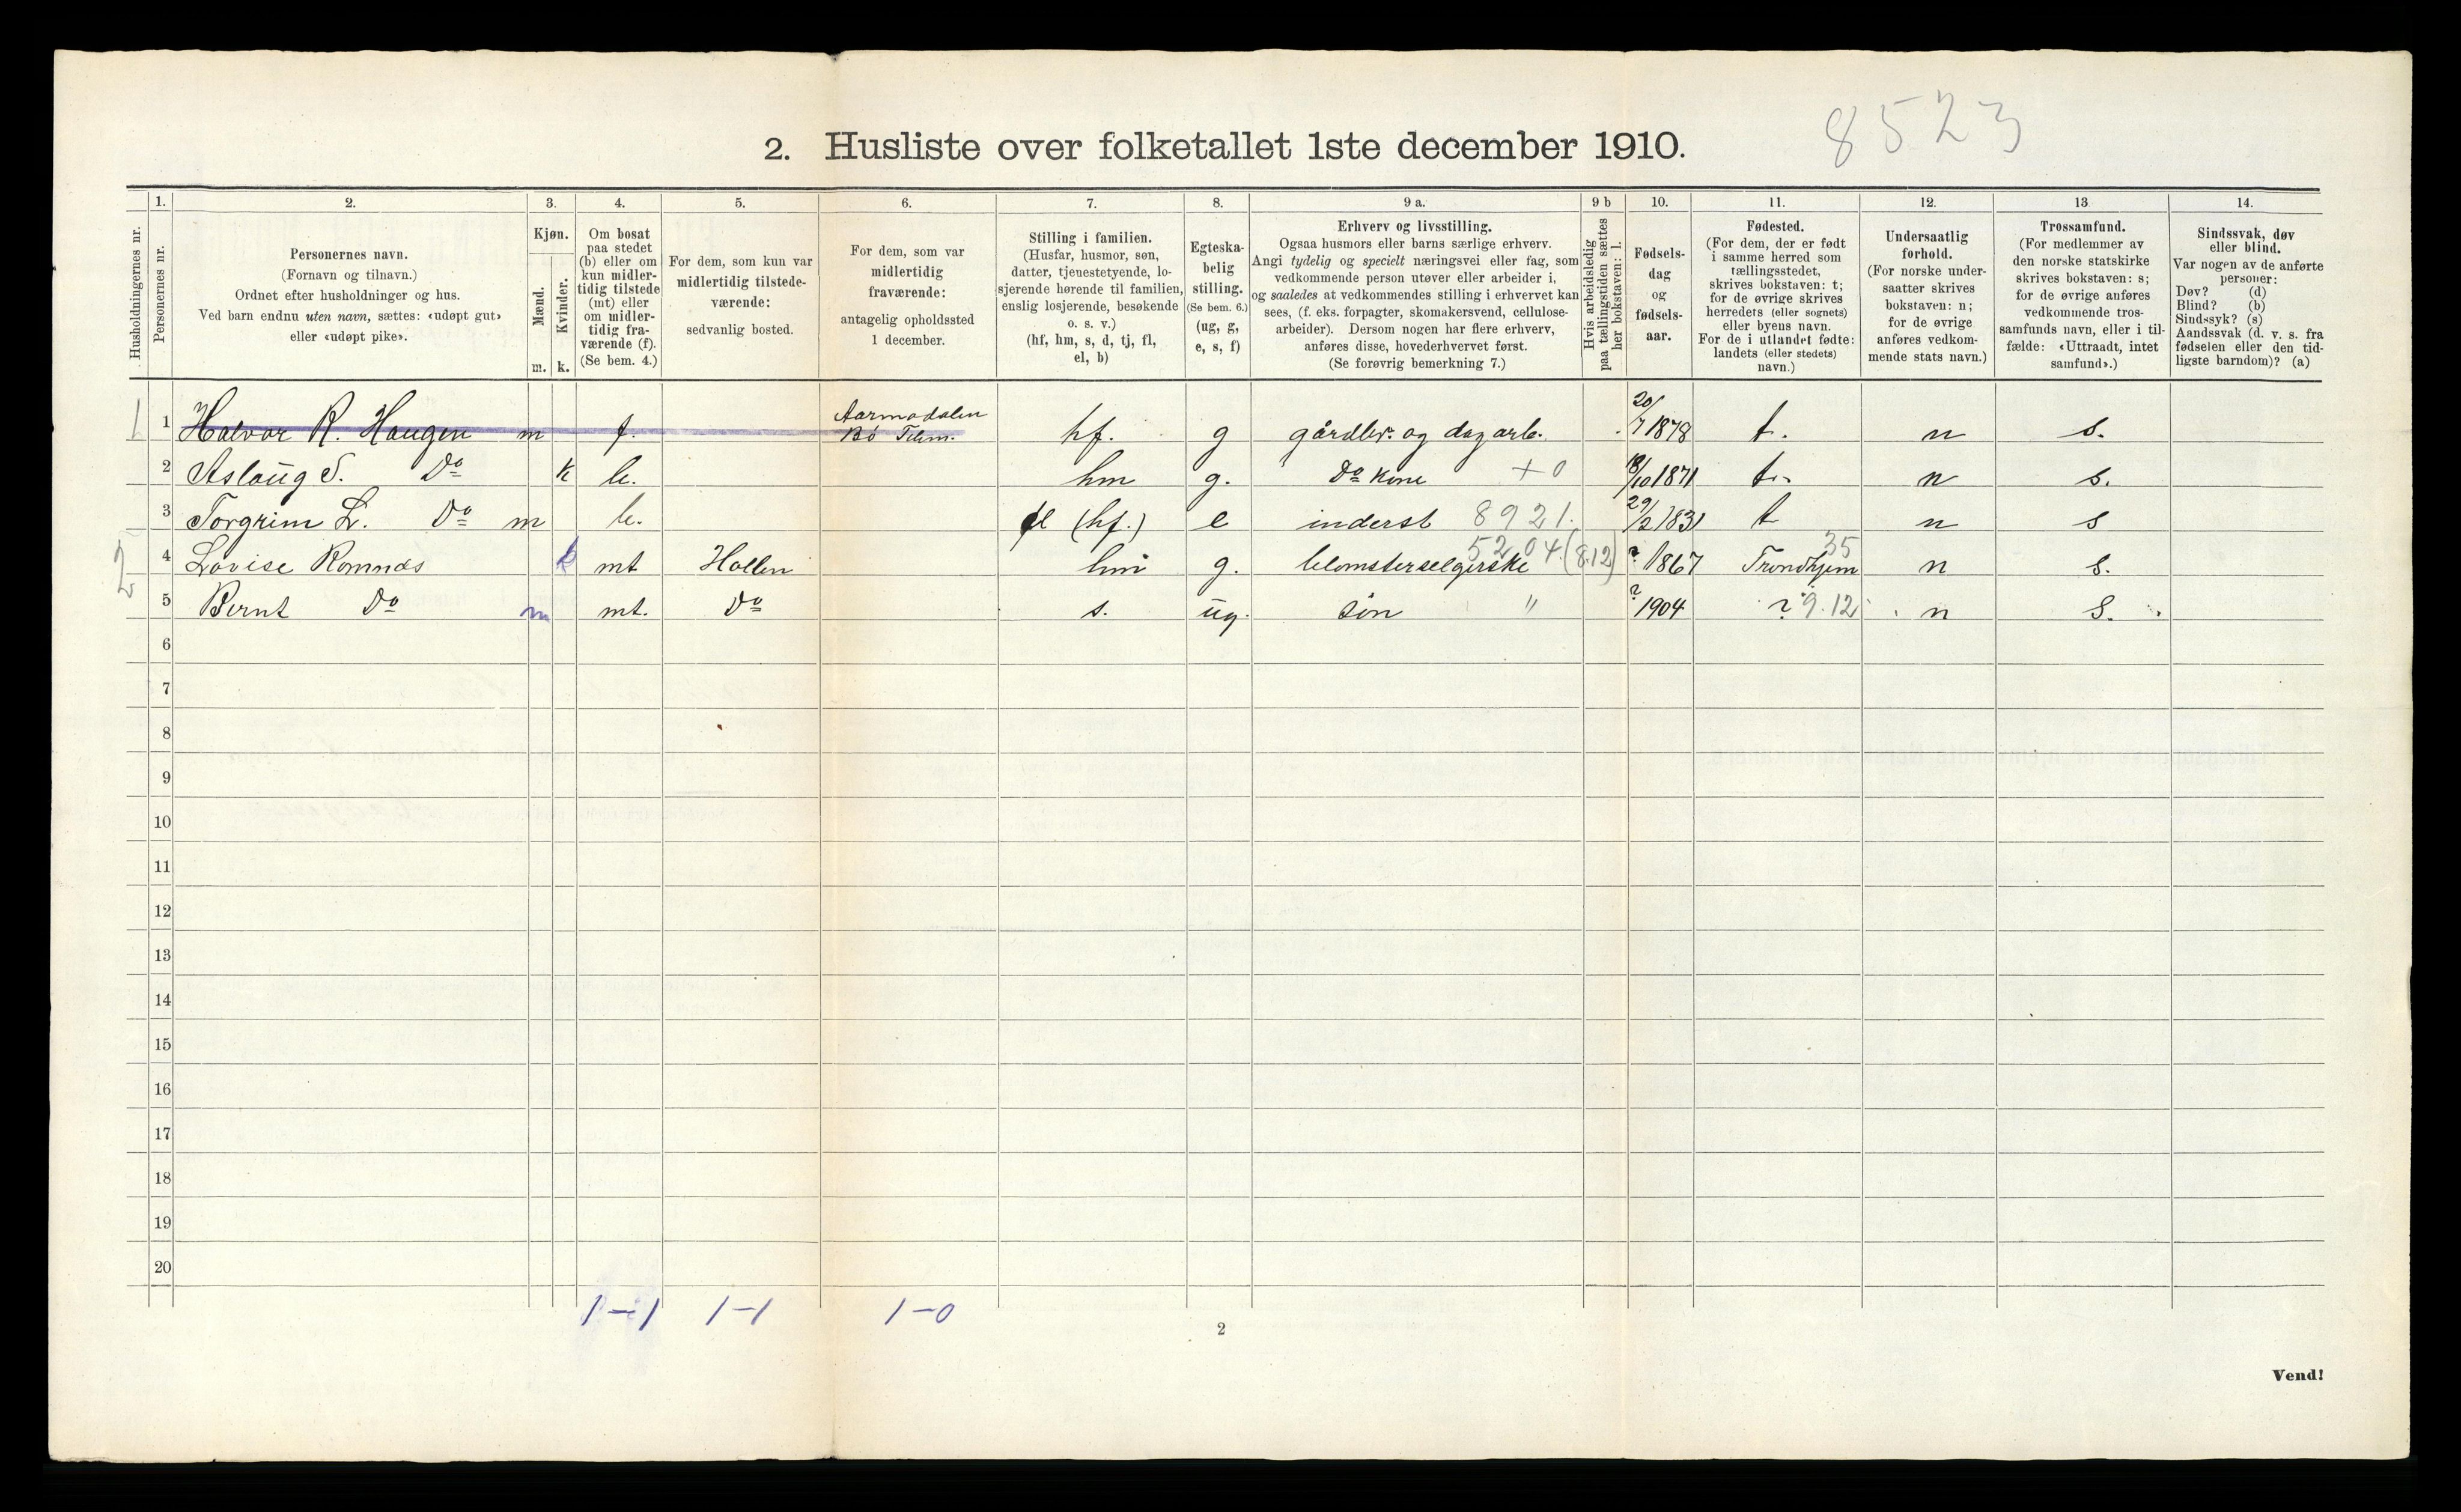 8523
2. Husliste over folketallet 1ste december 1910.
Husholdningernes nr.
1.
Personernes nr.
2.
Personernes navn.
(Fornavn og tilnavn.)
Ordnet efter husholdninger og hus.
Ved barn endnu uten navn, sættes: «udøpt gut»
eller «udøpt pike».
3.
Kjøn.
Mænd.
Kvinder.
m. k.
4.
Om bosat
paa stedet
(b) eller om
kun midler-
tidig tilstede
(mt) eller
om midler-
tidig fra-
værende (f).
(Se bem. 4.)
5.
For dem, som kun var
midlertidig tilstede-
værende:
sedvanlig bosted.
6.
For dem, som var
midlertidig
fraværende:
antagelig opholdssted
1 december.
7.
Stilling i familien.
(Husfar, husmor, søn,
datter, tjenestetyende, lo-
sjerende hørende til familien,
enslig losjerende, besøkende
o. s. v.)
(hf, hm, s, d, tj, fl,
el, b)
8.
Egteska-
belig
stilling.
(Se bem. 6.)
(ug, g,
e, s, f)
9 a.
Erhverv og livsstilling.
Ogsaa husmors eller barns særlige erhverv.
Angi tydelig og specielt næringsvei eller fag, som
vedkommende person utøver eller arbeider i,
og saaledes at vedkommendes stilling i erhvervet kan
sees, (f. eks. forpagter, skomakersvend, cellulose-
arbeider). Dersom nogen har flere erhverv,
anføres disse, hovederhvervet først.
(Se forøvrig bemerkning 7.)
9 b
Hvis arbeidsledig
paa tællingstiden sættes
her bokstaven: l.
10.
Fødsels-
dag
og
fødsels-
aar.
11.
Fødested.
(For dem, der er født
i samme herred som
tællingsstedet,
skrives bokstaven: t;
for de øvrige skrives
herredets (eller sognets)
eller byens navn.
For de i utlandet fødte:
landets (eller stedets)
navn.)
12.
Undersaatlig
forhold.
(For norske under-
saatter skrives
bokstaven: n;
for de øvrige
anføres vedkom-
mende stats navn.)
13
Trossamfund.
(For medlemmer av
den norske statskirke
skrives bokstaven: s;
for de øvrige anføres
vedkommende tros-
samfunds navn, eller i til-
fælde: «Uttraadt, intet
samfund».)
14.
Sindssvak, døv
eller blind.
Var nogen av de anførte
personer:
Døv? (d)
Blind? (b)
Sindssyk? (s)
Aandssvak (d. v. s. fra
fødselen eller den tid-
ligste barndom)? (a)
1 1 Halvor R. Haugen m f. Bø Telem. hf. g gårdbr. og dagarb. 20/7 1878 t. n s.
2 Aslaug S. Do k b. hm g. Do kone + 0 18/10 1871 t. n s.
3 Torgrim L. Do m b. el (hf.) e inderst 8921. 29/2 1831 t n s
2 4 Lovise Romnæs k mt Hollen hm g. blomsterselgerske 5204. (8.12) ? 1867 Trondhjem 35 n s.
5 Bernt Do m mt. Do s. ug. søn " ? 1904 ? 9.12 n s.
6
7
8
9
10
11
12
13
14
15
16
17
18
19
20
1-1 1-1 1-0
2
Vend!